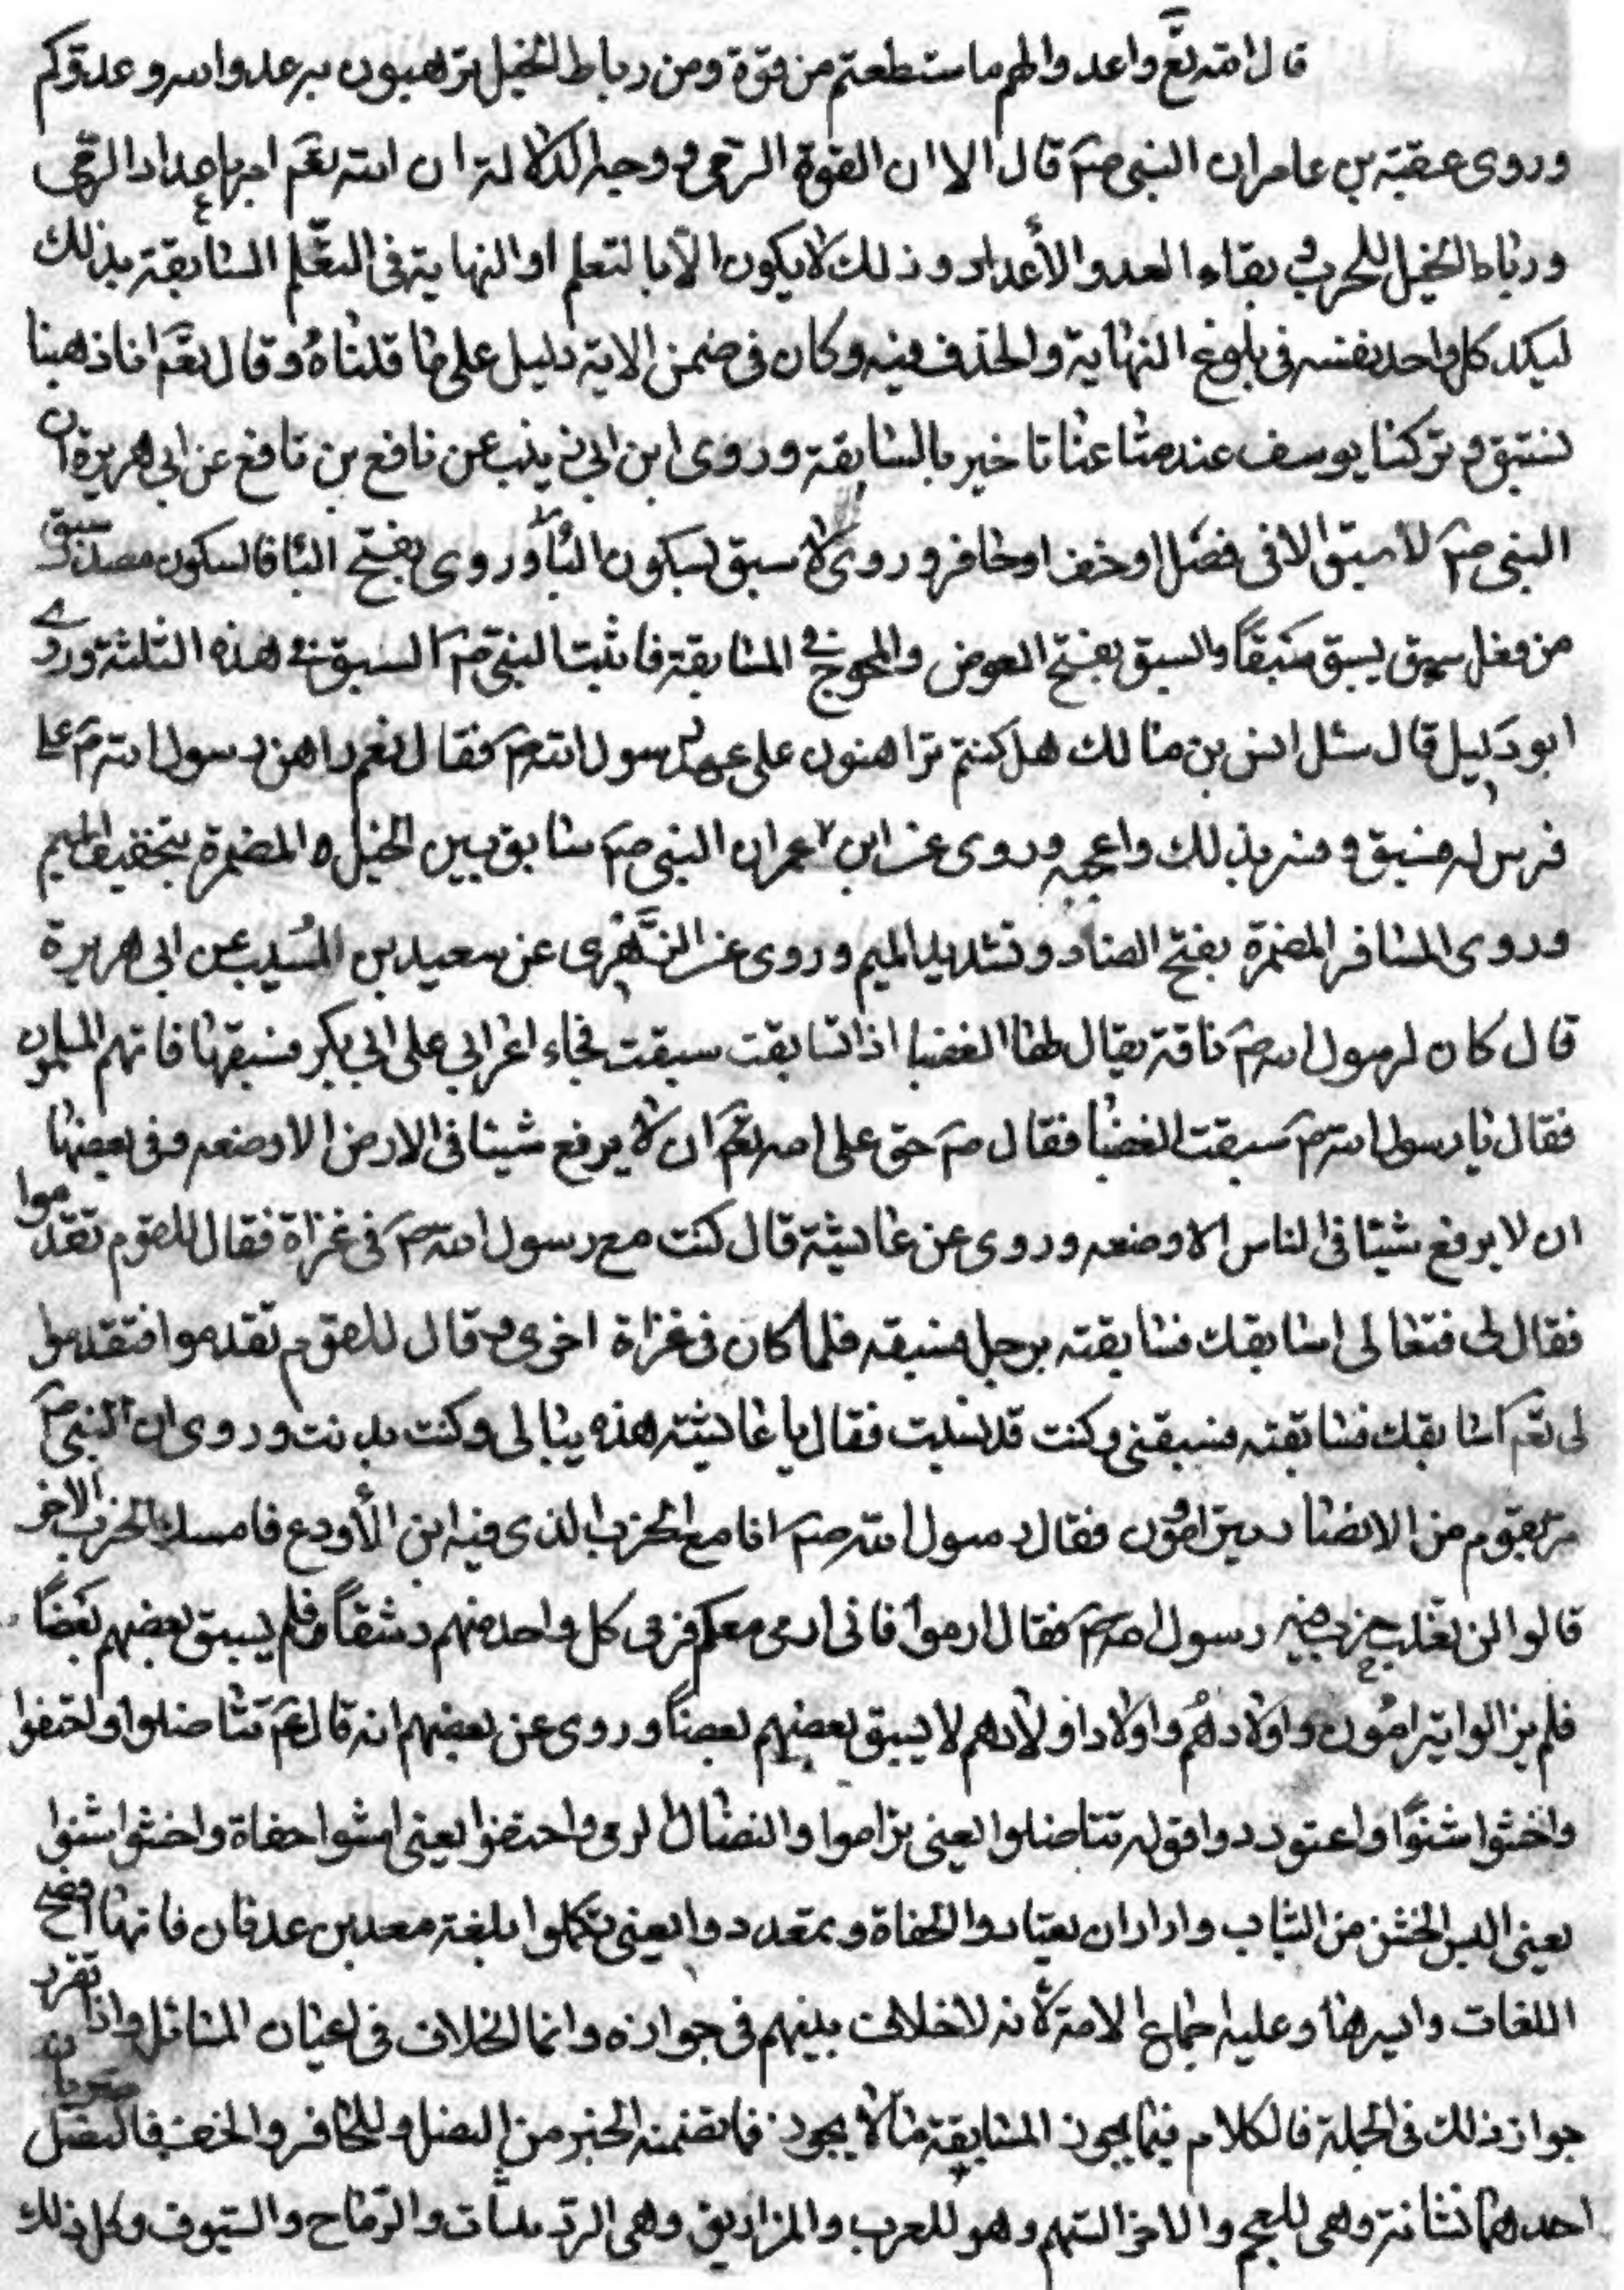 قال الله تع واعدوا لهم ما ستطعتم من قوة ومن رباط الخيل ترهبون به عدوا لله وعدوكم
وروى عقبة بن عامر ان النبي صم قال الا ان القوة الرمي ووجه الدلالة ان الله تعم امر باعداد الرمي
ورباط الخيل للحرب و لقاء العدو والأعداد وذلك لا يكون الا بالتعلم او النهاية في التعلم المسابقة بذلك
ليكد كل واحد نفسه في بلوغ النهاية والحذف فيه وكان في ضمن الاية دليل على ما قلناه وقال تعم انا ذهبنا
نستبق وتركنا يوسف عند متاعنا تاخير بالسابقة وروى ابن ابي ذيب عن نافع بن نافع عن ابي هريرة ان
النبي صم لا سبق الا في نصل او خف او حافر وروى لا سبق بسكون البا وروى بفتح البا فالسكون مصدر سبق
من فعل سبق يسبق سبقاً والسبق بفتح العوض والمخرج في المسابقة فاثبت النبي صم السبق في هذه الثلثة وروى
ابو لبيد قال سئل انس بن مالك هل كنتم تراهنون على عهد رسول الله صم فقال نعم راهن رسول الله صم على
فرس له فسبق فسر بذلك واعجبه وروى عن ابن عمر ان النبي صم سابق بين الخيل المضمرة بتخفيف الميم
وروى المسافر المضمرة بفتح الضاد وتشديد الميم وروى عن الزهرى عن سعيد بن المسيب عن ابي هريرة
قال كان لرسول الله صم ناقة يقال لها العضبا اذا تسابقت سبقت فجاء اعرابي على ابي بكر فسبقها فاتهم المسلمون
فقال يا رسول الله صم سبقت العضبا فقال صم حق على الله تعم ان لا يرفع شيئا في الارض الا وضعه وفى بعضها
ان لا يرفع شيئا فى الناس الا وضعه وروى عن عايشة قال كنت مع رسول الله صم فى غزاة فقال للقوم تقدموا
فقال لى فتعالى اسابقك فسابقته برجل فسبقه فلما كان فى غزاة اخرى وقال للقوم تقدموا فتقدموا
لى تعم اسابقك فسابقته فسبقني وكنت قد نسيت فقال يا عايشة هذه بتالى وكنت بدنت وروى ان النبي صم
مر بقوم من الانصار يترامون فقال رسول الله صم انا مع الحزب الذى فيه ابن الأودع فامسك الحزب الاخر
قالوا لن نغلب حزب فيه رسول الله صم فقال ارموا فانى ارمى معكم فرمى كل واحد منهم رشقاً فلم يسبق بعضهم بعضاً
فلم يزالوا يترامون واولادهم واولاد اولادهم لا يسبق بعضهم بعضاً وروى عن بعضهم انه قال عم تناضلوا واحتفوا
واخشوا شنوا واعتوددوا قوله تناضلوا يعنى تراموا والنضال الرمى واحتفوا يعنى امشوا حفاة واخشوا شنوا
يعنى البس الخشن من الثياب واراد ان يعتادوا الحفاة وتمعددوا يعنى تكلموا بلغة معد بن عدنان فانها افصح
اللغات وايسرها وعليه اجماع الامة لأنه لا خلاف بينهم فى جوازه وانما الخلاف فى اعيان المسائل واذا تقرر
جواز ذلك فى الجملة فالكلام فيما يجوز المسابقة ما لا يجوز فما تضمنه الخبر من النصل وللحافر والخف فالنصل
احدهما نشابة وهى للعجم والاخر السهم وهو للعرب والمزاريق وهى الردينيات والرماح والسيوف وكل ذلك